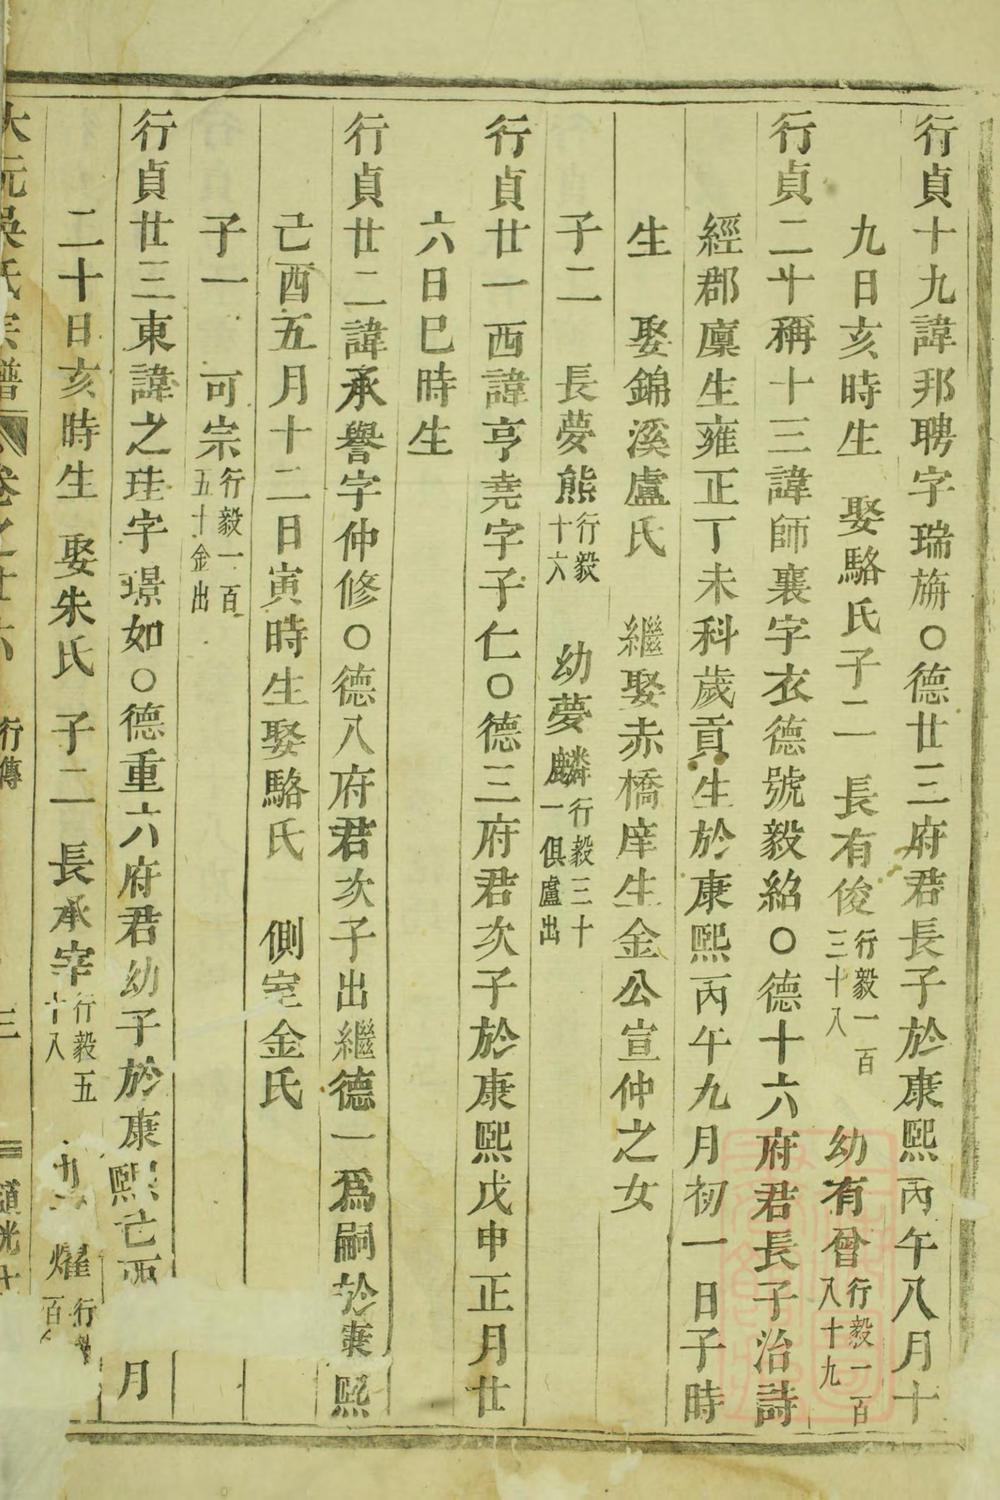 行貞十九諱邦聘字瑞旃○德廿三府君長子於康熙丙午八月十
九日亥時生 娶駱氏子二 長有俊行毅一百三十八 幼有曾行毅一百八十九
行貞二十稱十三諱師襄字衣德號毅紹○德十六府君長子治詩
經郡廩生雍正丁未科歲貢生於康熙丙午九月初一日子時
生 娶錦溪盧氏 繼娶赤橋庠生金公宣仲之女
子二 長夢熊行毅十六 幼夢麟行毅三十一俱盧出
行貞廿一西諱亨堯字子仁○德三府君次子於康熙戊申正月廿
六日巳時生
行貞廿二諱承譽字仲修○德八府君次子出繼德一爲嗣於康熙
己酉五月十二日寅時生娶駱氏 側室金氏
子一 可宗行毅一百五十金出
行貞廿三東諱之珪字璟如○德重六府君幼子於康熙己酉 月
二十日亥時生 娶朱氏 子二 長承宰行毅五十八 燿行 百
大元吳氏宗譜 卷之廿六 行傳 三 道光